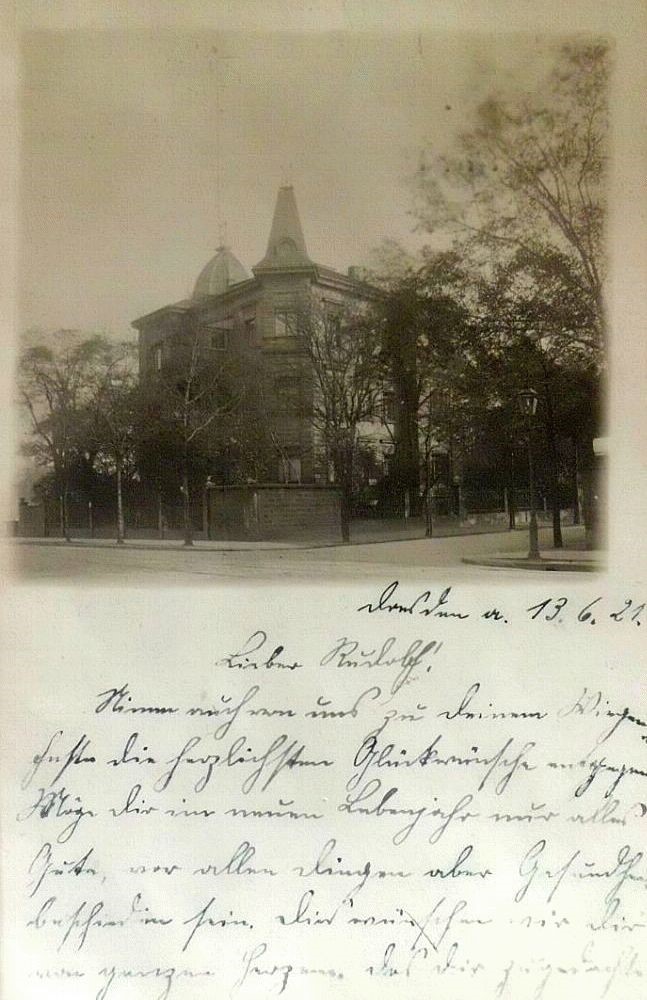 Dresden a. 13.6.21.
Lieber Rudolf!
Nimm auch von uns zu deinem Wiegen-
feste die herzlichsten Glückwünsche entgegen
Möge dir im neuen Lebenjahr nur alles
Gute, vor allen Dingen aber Gesundheit
beschieden sein. wünschen wir dir
von ganzen Herzen. das dir zugedachte